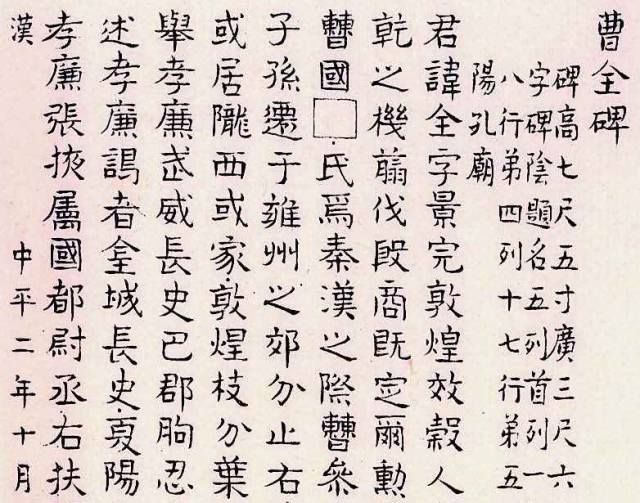 曹全碑
碑高七尺五寸廣三尺六
字碑陰題名五列首列一
八行弟四列十七行弟五
陽孔廟
君諱全字景完敦煌效穀人
乾之機翦伐殷商既定爾勳
曹國□氏焉秦漢之際曹參
子孫遷于雍州之郊分止右
或居隴西或家敦煌枝分葉
舉孝廉武威長史巴郡朐忍
述孝廉謁者金城長史夏陽
孝廉張掖屬國都尉丞右扶
漢 中平二年十月